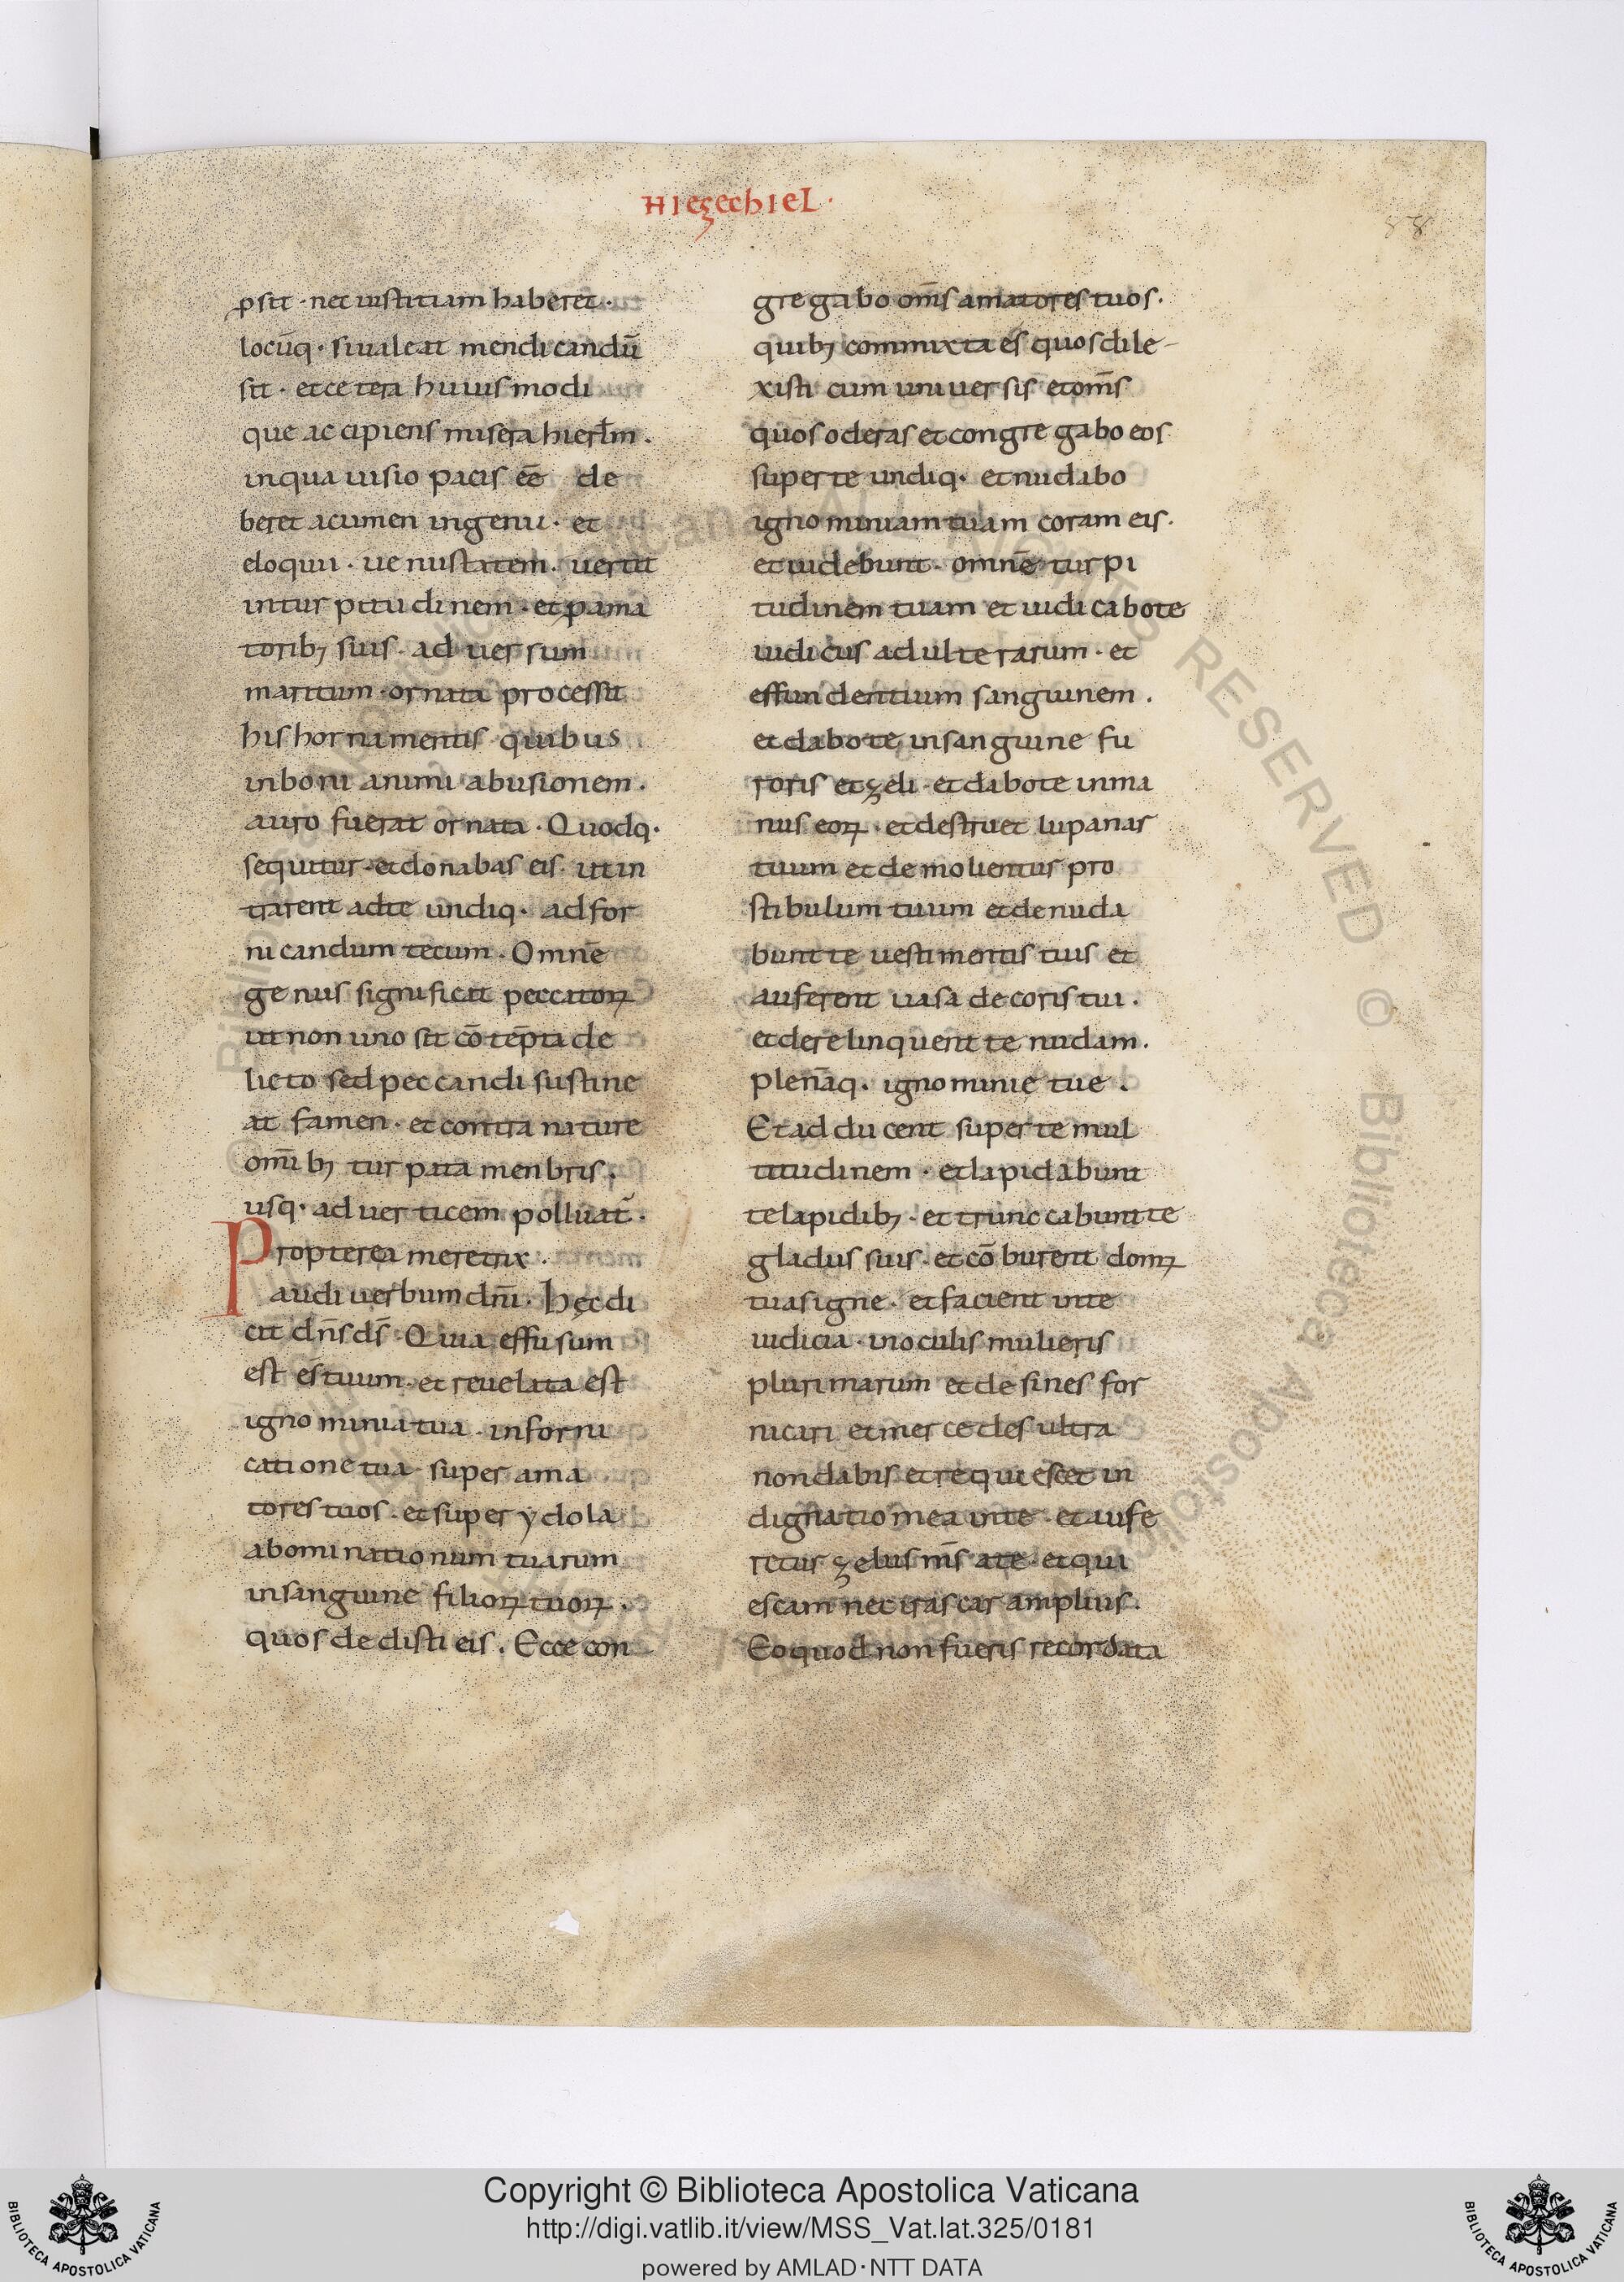 HIEZECHIEL·
88
ꝓsit · nec iustitiam haberet ·
locūq· si ualeat mendicandū
sit · et cetera huiusmodi
que accipiens misera hierl̄m .
in qua uisio pacis eē de
beret acumen ingenii · et
eloquii · uenustatem . uertit
in turpitudinem · et p ama
torib; suis · aduersum
maritum · ornata processit
his hornamentis quibus
in boni animi abusionem .
auro fuerat ornata . Quodq·
sequitur · et donabas eis · ut in
trarent ad te undiq· ad for
nicandum tecum . Omnē
genus significat peccatoꝝ
ut non uno sit cōtēpta de
licto sed peccandi sustine
at famen · et contra nature
om̄ib; turpata menbris .
usq· ad uerticem̄ polluat̄ .
Propterea meretrix .
audi uerbum dn̄i . Hęc di
cit dn̄s ds̄ . Quia effusum
est es̄ tuum . et reuelata est
ignominia tua . in forni
catione tua · super ama
tores tuos . et super ydola
abominationum tuarum
in sanguine filioꝝ tuoꝝ .
quos dedisti eis . Ecce con
gregabo om̄s amatores tuos .
quib; commixta es quos dile-
xisti cum uniuersis et om̄s
quos oderas et congregabo eos
super te undiq· et nudabo
ignominiam tuam coram eis .
et uidebunt . omnē turpi
tudinem tuam et iudicabo te
iudiciis adulterarum · et
effundentium sanguinem .
et dabo te in sanguine fu
roris et zeli · et dabo te in ma
nus eoꝝ · et destruet lupanar
tuum et demolientur pro
stibulum tuum et denuda
bunt te uestimentis tuis et
auferent uasa decoris tui .
et derelinquent te nudam .
plenāq· ignominię tue .
Et adducent super te mul
titudinem · et lapidabunt
te lapidib; · et truncabunt te
gladiis suis . et cōburent domꝝ
tuas igne . et facient in te
iudicia · in oculis mulieris
plurimarum et desines for
nicari et mercedes ultra
non dabis et requiescet in
dignatio mea in te . et aufe
retur zelus ms̄ a te . et qui
escam nec irascar amplius .
Eo quod non fueris recordata
Copyright © Biblioteca Apostolica Vaticana
http://digi.vatlib.it/view/MSS_Vat.lat.325/0181
powered by AMLAD·NTT DATA
BIBLIOTECA APOSTOLICA VATICANA
BIBLIOTECA APOSTOLICA VATICANA